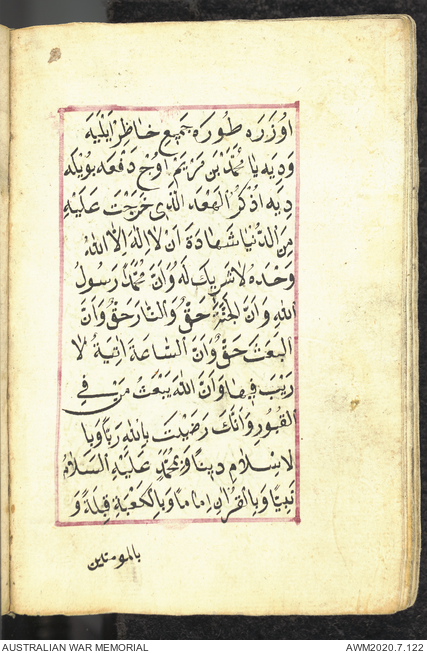 اوُزَرَه طُورَه جَمِيعِ حَاظِر ايْلَيَه
وَدِيَه يَا مُحَمَّدْ بْن مَرْيَم اوُچ دَفْعَه بُويْلَه
دِيَه اُذْكُرُ الْعَهْدَ الَّذِى خَرَجْتَ عَلَيْهِ
مِنَ الدُّنْيَا شَهَادَةَ اَنْ لَا اِلٰهَ اِلَّا اللهُ
وَحْدَهُ لَا شَرِيكَ لَهُ وَاَنَّ مُحَمَّدً رَسُولُ
اللهِ وَاَنَّ الْجَنَّةَ حَقٌّ وَالنَّارَ حَقٌّ وَاَنَّ
الْبَعْثَ حَقٌّ وَاَنَّ السَّاعَةَ اٰتِيَةٌ لَا
رَيْبَ فِيهَا وَاَنَّ اللهَ يَبْعَثُ مَنْ فِى
الْقُبُورِ وَاَنَّكَ رَضِيْتَ بِاللهِ رَبًّا وَبِا
لْاِسْلَامِ دِينًا وَبِمُحَمَّدٍ عَلَيْهِ السَّلَامُ
نَبِيًّا وَبِالْقُرْاٰنِ اِمَامًا وَبِالْكَعْبَةِ قِبْلَةً وَ
بالمومنين
AUSTRALIAN WAR MEMORIAL AWM2020.7.122